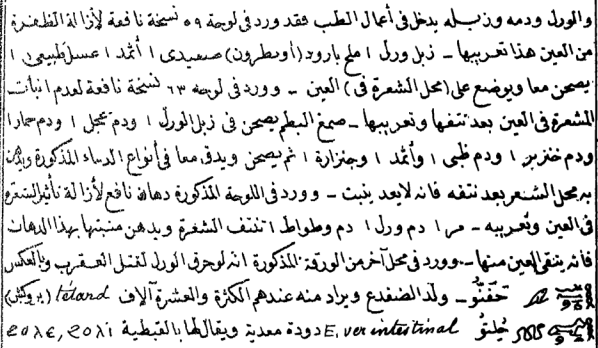 والورل ودمه وزبله يدخل فى أعمال الطب فقد ورد فى لوحة ٥٩ نسخة نافعة لأزالة الظفرة
من العين هذا تعريبها – زبل ورل ١ ملح بارود (أو نطرون) صعيدى ١ أثمد ١ عسل طبيعى ١
يصحن معا ويوضع على (محل الشعرة فى) العين – وورد فى لوحه ٦٣ نسخة نافعة لعدم انبات
الشعرة فى العين بعد نتفها وتعريبها – صمغ البطم يصحن فى زبل الورل ١ ودم عجل ١ ودم حمار ١
ودم خنزير ١ ودم ظبى ١ وأثمد ١ وجنزارة ١ ثم يصحن ويدق معا فى أنواع الدماء المذكورة ويدهن
به محل الشعر بعد نتفه فانه لا يعد ينبت – وورد فى اللوحة المذكورة دهان نافع لأزالة تأثير الشعرة
فى العين وتعريبه – مر ١ دم ورل ١ دم وطواط ١ تنتف الشعرة ويدهن منبتها بهذا الدهان
فانه ينقى العين منها – وورد فى محل آخر من الورقة المذكورة انه لو حرق الورل لقتل العقرب وبالعكس
حَفَنُّو – ولد الضفدع ويراد منه عندهم الكثرة والعشرة آلاف têtard (بروكش)
حُلِتو E, ver intestinal دودة معدية ويقال لها بالقبطية